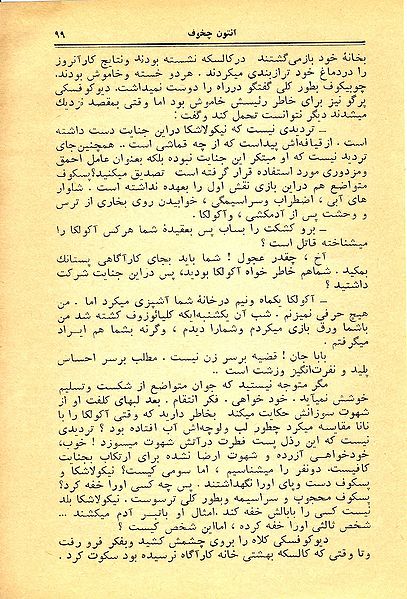 آنتون چخوف ۹۹
بخانهٔ خود بازمی‌گشتند درکالسکه نشسته بودند ونتایج کارآنروز
را دردماغ خود ترازبندی میکردند . هردو خسته وخاموش بودند.
چوبیکوف بطور کلی گفتگو درراه را دوست نمیداشت. دیوکوفسکی
پرگو نیز برای خاطر رئیسش خاموش بود اما وقتی بمقصد نزدیك
میشدند دیگر نتوانست تحمل کند وگفت:
ـ تردیدی نیست که نیکولاشکا دراین جنایت دست داشته
است . ازقیافه‌اش پیداست که از چه قماشی است .. همچنین‌جای
تردید نیست که او مبتکر این جنایت نبوده بلکه بعنوان عامل احمق
ومزدوری مورد استفاده قرار گرفته است تصدیق میکنید؟پسکوف
متواضع هم دراین بازی نقش اول را بعهده نداشته است . شلوار
های آبی ، اضطراب وسراسیمگی ، خوابیدن روی بخاری از ترس
و وحشت پس از آدمکشی ، وآکولکا .
ـ برو کشکت را بساب پس بعقیدهٔ شما هرکس آکولکا را
میشناخته قاتل است ؟
آخ ، چقدر عجول ! شما باید بجای کارآگاهی پستانك
بمکید . شماهم خاطر خواه آکولکا بودید، پس دراین جنایت شرکت
داشتید ؟
ـ آکولکا یکماه ونیم درخانهٔ شما آشپزی میکرد اما . من
هیچ حرفی نمیزنم . شب آن یکشنبه‌ایکه کلیائوزوف کشته شد من
باشما ورق بازی میکردم وشمارا دیدم ، وگرنه بشما هم ایراد
میگرفتم .
بابا جان ! قضیه برسر زن نیست . مطلب برسر احساس
پلید و نفرت‌انگیز وزشت است ..
مگر متوجه نیستید که جوان متواضع از شکست وتسلیم
خوشش نمیآید . خود خواهی . فکر انتقام . بعد لبهای کلفت او از
شهوت سوزانش حکایت میکند بخاطر دارید که وقتی آکولکا را با
نانا مقایسه میکرد چطور لب ولوچه‌اش آب افتاده بود ؟ تردیدی
نیست که این رذل پست فطرت درآتش شهوت میسوزد ! خوب،
خودخواهی آزرده و شهوت ارضا نشده برای ارتکاب بجنایت
کافیست. دونفر را میشناسیم ، اما سومی کیست؟ نیکولاشکا و
پسکوف دست وپای اورا نگهداشتند . پس چه کسی اورا خفه کرد؟
پسکوف محجوب و سراسیمه وبطور کلی ترسوست . نیکولاشکا بلد
نیست کسی را بابالش خفه کند .امثال او باتبر آدم میکشند ...
شخص ثالثی اورا خفه کرده ، امااین شخص کیست ؟
دیوکوفسکی کلاه را بروی چشمش کشید وبفکر فرو رفت
وتا وقتی که کالسکه بهشتی خانه کارآگاه نرسیده بود سکوت کرد .